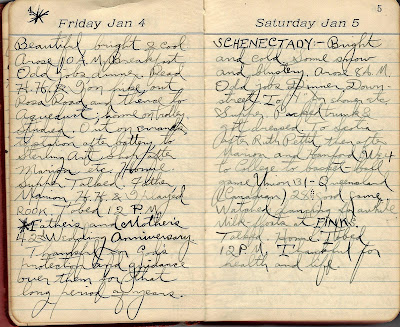 Friday Jan 4
Beautiful bright & cool
Arose 10 A.M. Breakfast
Odd jobs dinner Read
H.H.&R for ride out
Rosa Road and thence to
Aqueduct; home on trolley
Snoozed. Out on errands
Station after battery to
Sterling Art Shop after
Marion etc Home
Supper Talked. Father
Marion H.H. & I played
ROOK. To bed 12 P.M.
Father's and Mother's
42 Wedding Anniversary
I thankful for God's
protection and guidance
over them for that
long period of years.
5
Saturday Jan 5
SCHENECTADY:- Bright
and cold some snow
and blustery. Arose 8 A.M.
Odd jobs Dinner, Down-
street
Supper Packed trunk &
got dressed. To
After Ruth then after
Marion and Hanford. We + 
to College to basket ball
game Union 31 - Queensland
(Canadian) 28 Good game
Watched dancing awhile
Milk floats at FINKS.
Talked. Home To bed
12 P.M. I thankful for
health and life